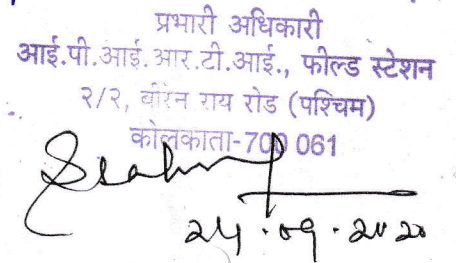 प्रभारी अधिकारी
आई.पी.आई.आर.टी.आई., फील्ड स्टेशन
२/२, बीरेन राय रोड (पश्चिम)
कोलकाता-700 061
24.09.2020